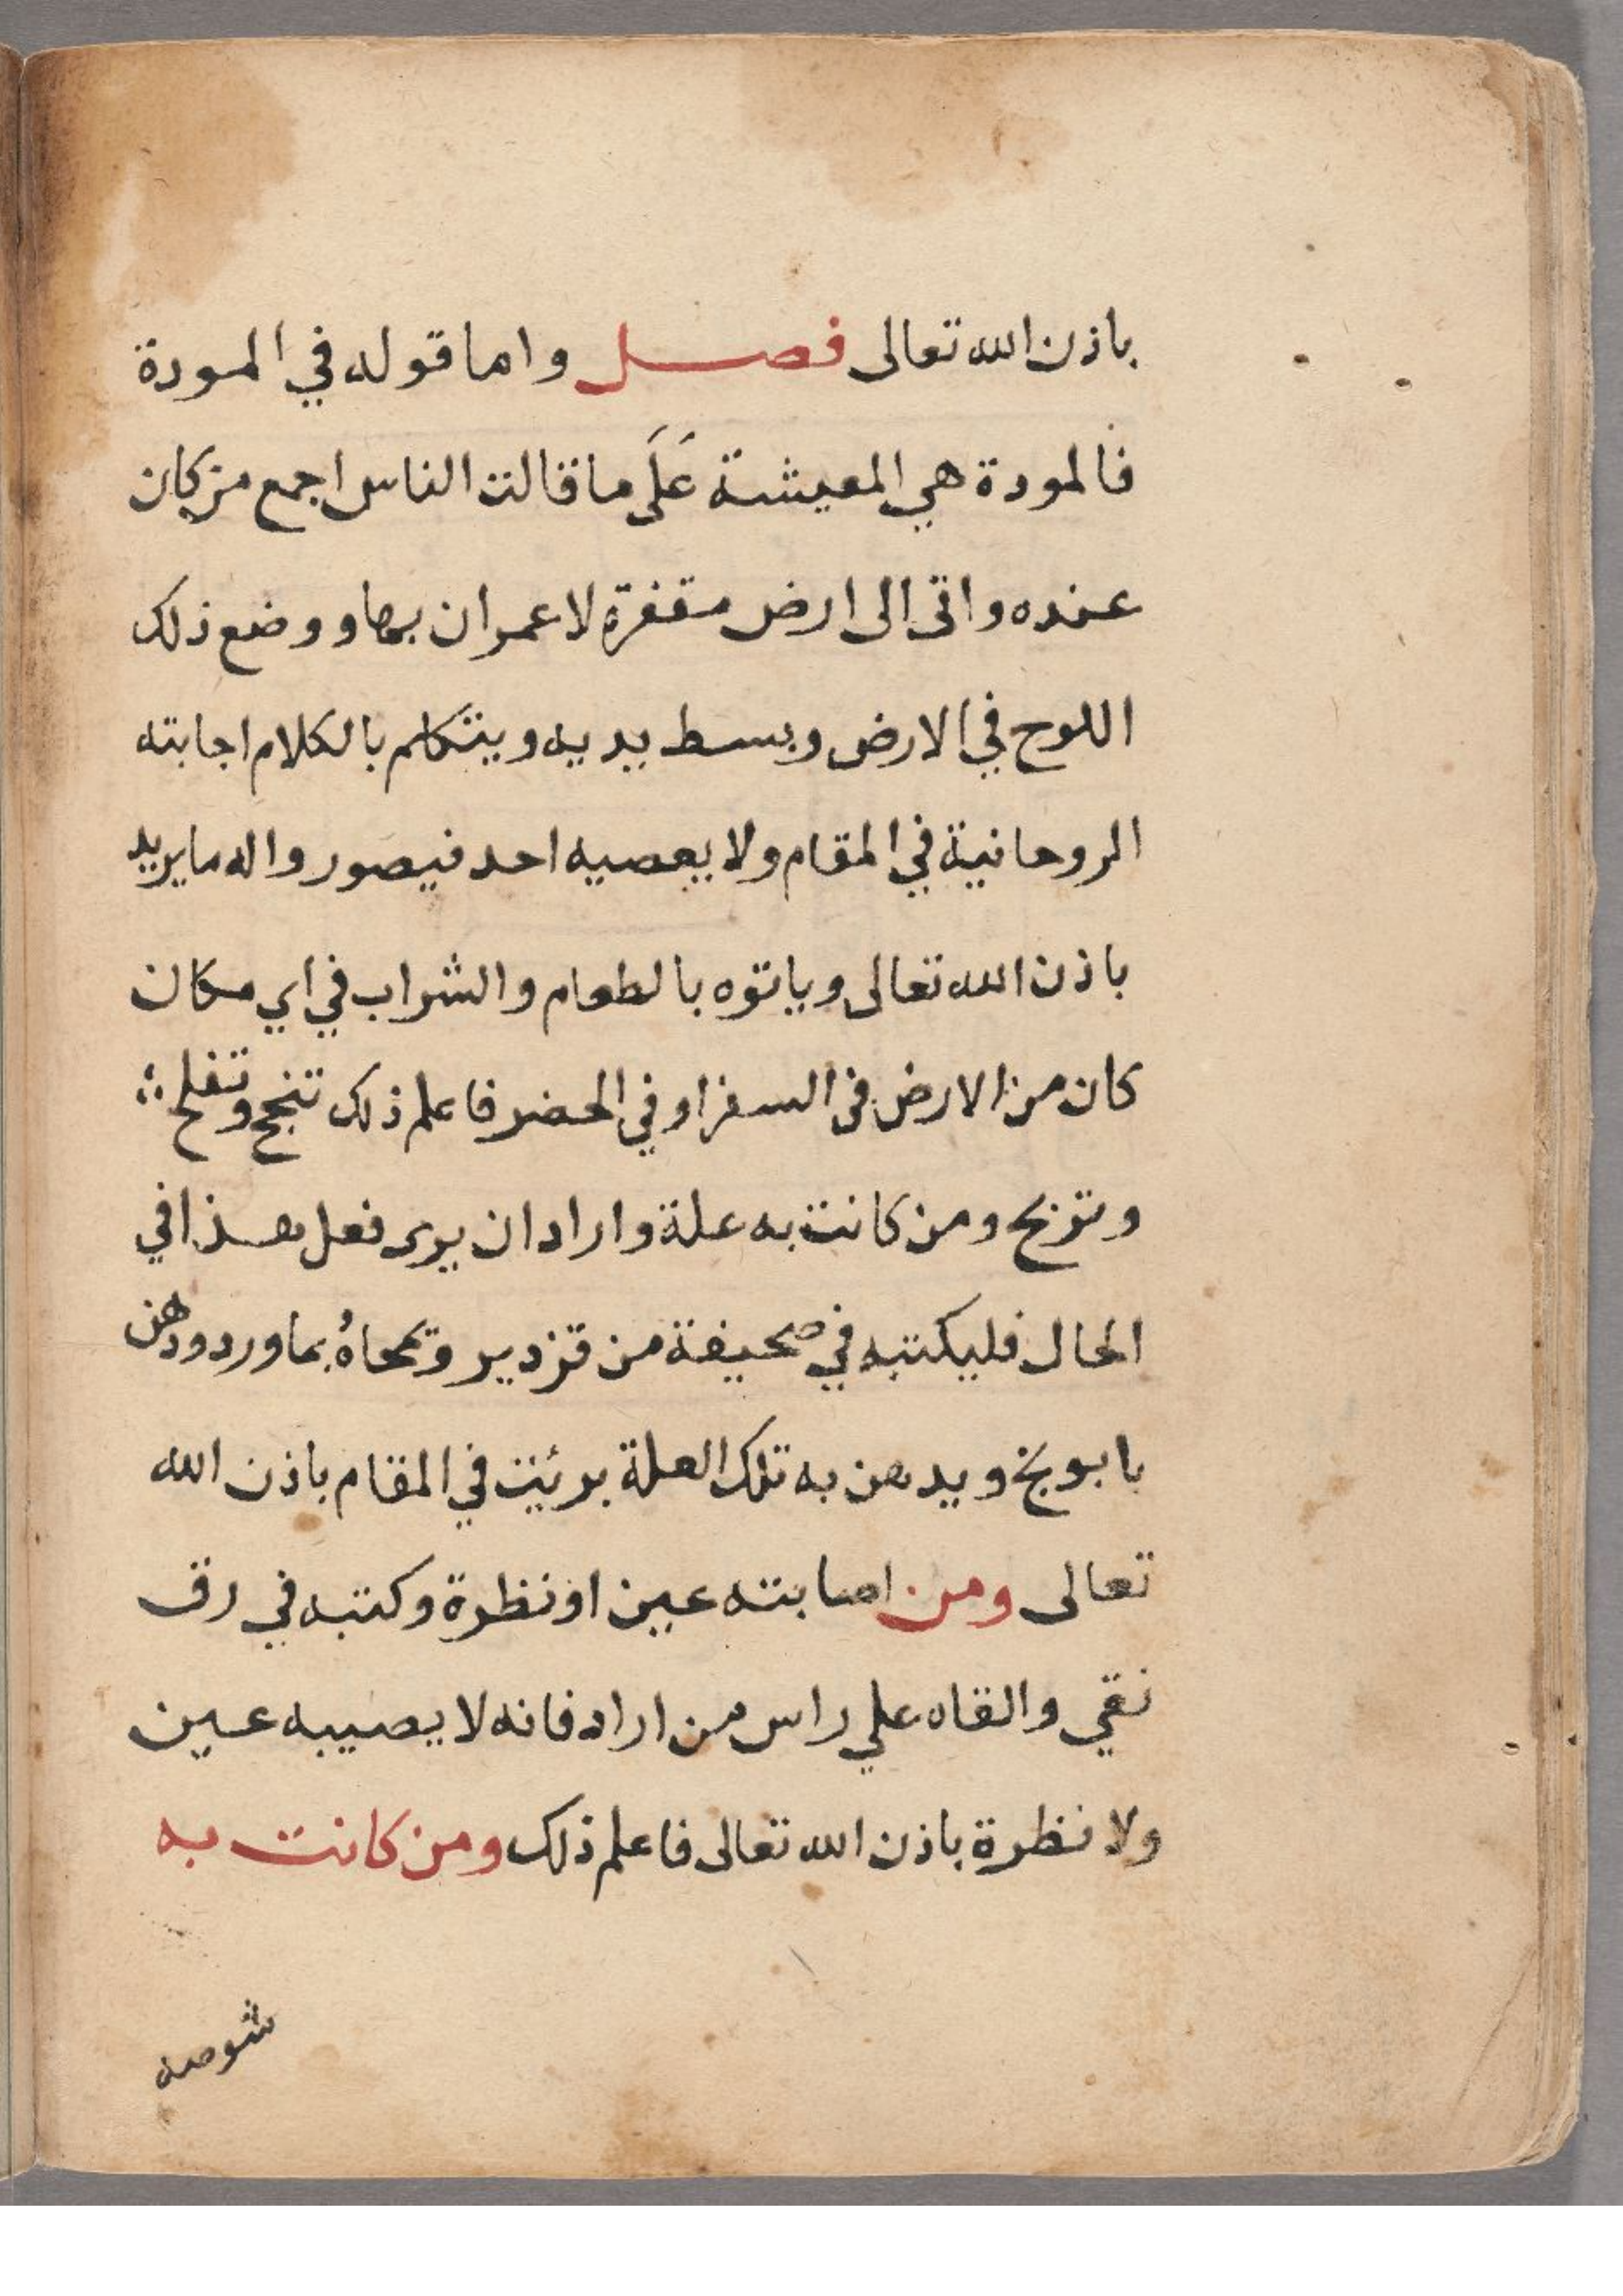 باذن الله تعالى فصل واما قوله في المودة
فالمودة هي المعيشة عَلَى ما قالت الناس اجمع من كان
عنده واتى الى ارض مقفرة لا عمران بها و وضع ذلك
اللوح في الارض وبسط يديه ويتكلم بالكلام اجابته
الروحانية في المقام ولا يعصيه احد فيصوروا له ما يريد
باذن الله تعالى وياتوه بالطعام والشراب في اي مكان
كان من الارض في السفر او في الحضر فاعلم ذلك تنجح وتفلح
وتربح ومن كانت به علة واراد ان يرى فعل هذا في
الحال فليكتبه في صحيفة من قزدير وتمحاهُ بماورد ودهن
بابونج ويدهن به تلك العلة برئيت في المقام باذن الله
تعالى ومن اصابته عين او نظرة وكتبه في رق
نقي والقاه علي راس من اراد فانه لا يصيبه عين
ولا نظرة باذن الله تعالى فاعلم ذلك ومن كانت به
شوصه